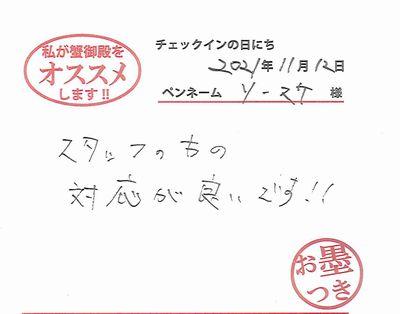 私が蟹御殿を
オススメ
します!!
チェックインの日にち
2021年11月12日
ペンネーム ソースケ 様
スタッフのもの
対応が良いです!!
お墨
つき